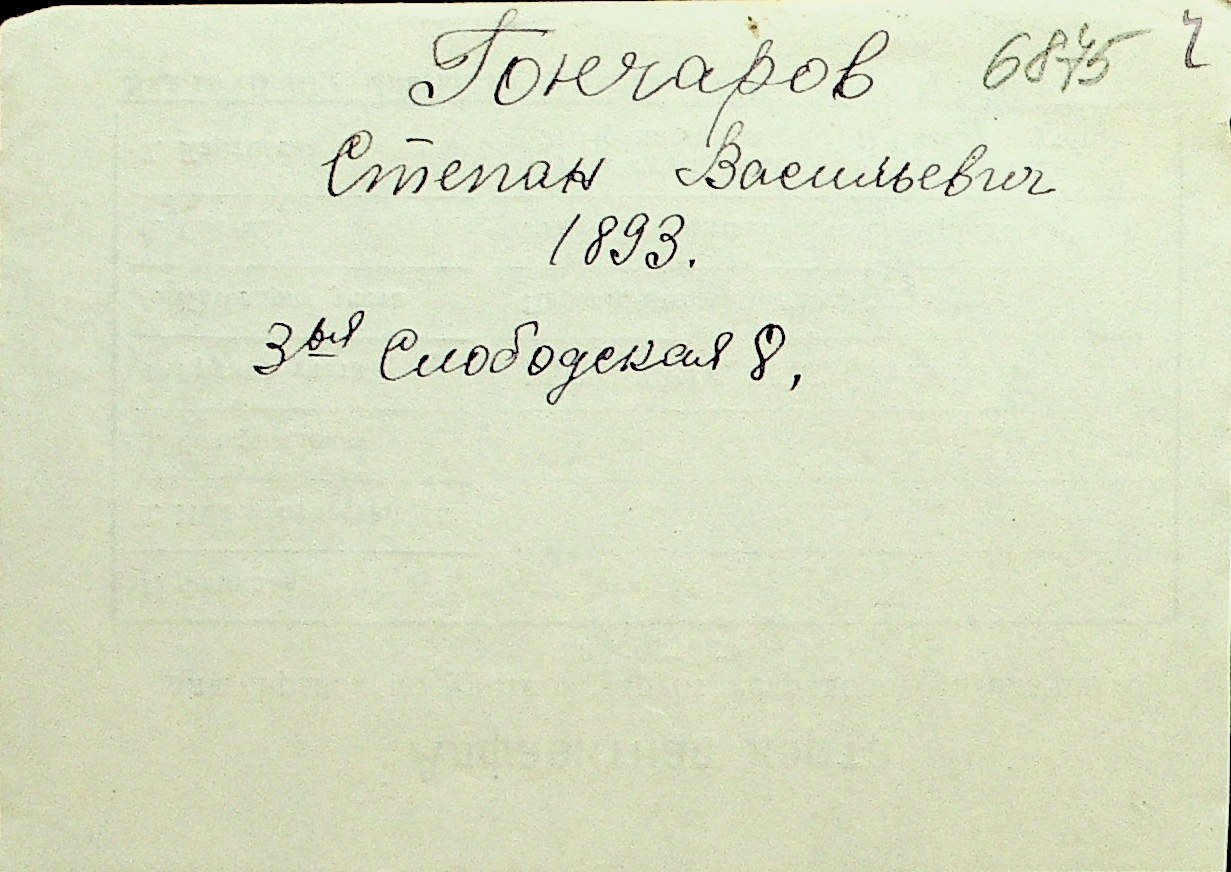 Гончаров 6875
Степан Васильевич
1893.
3ья Слободская 8,